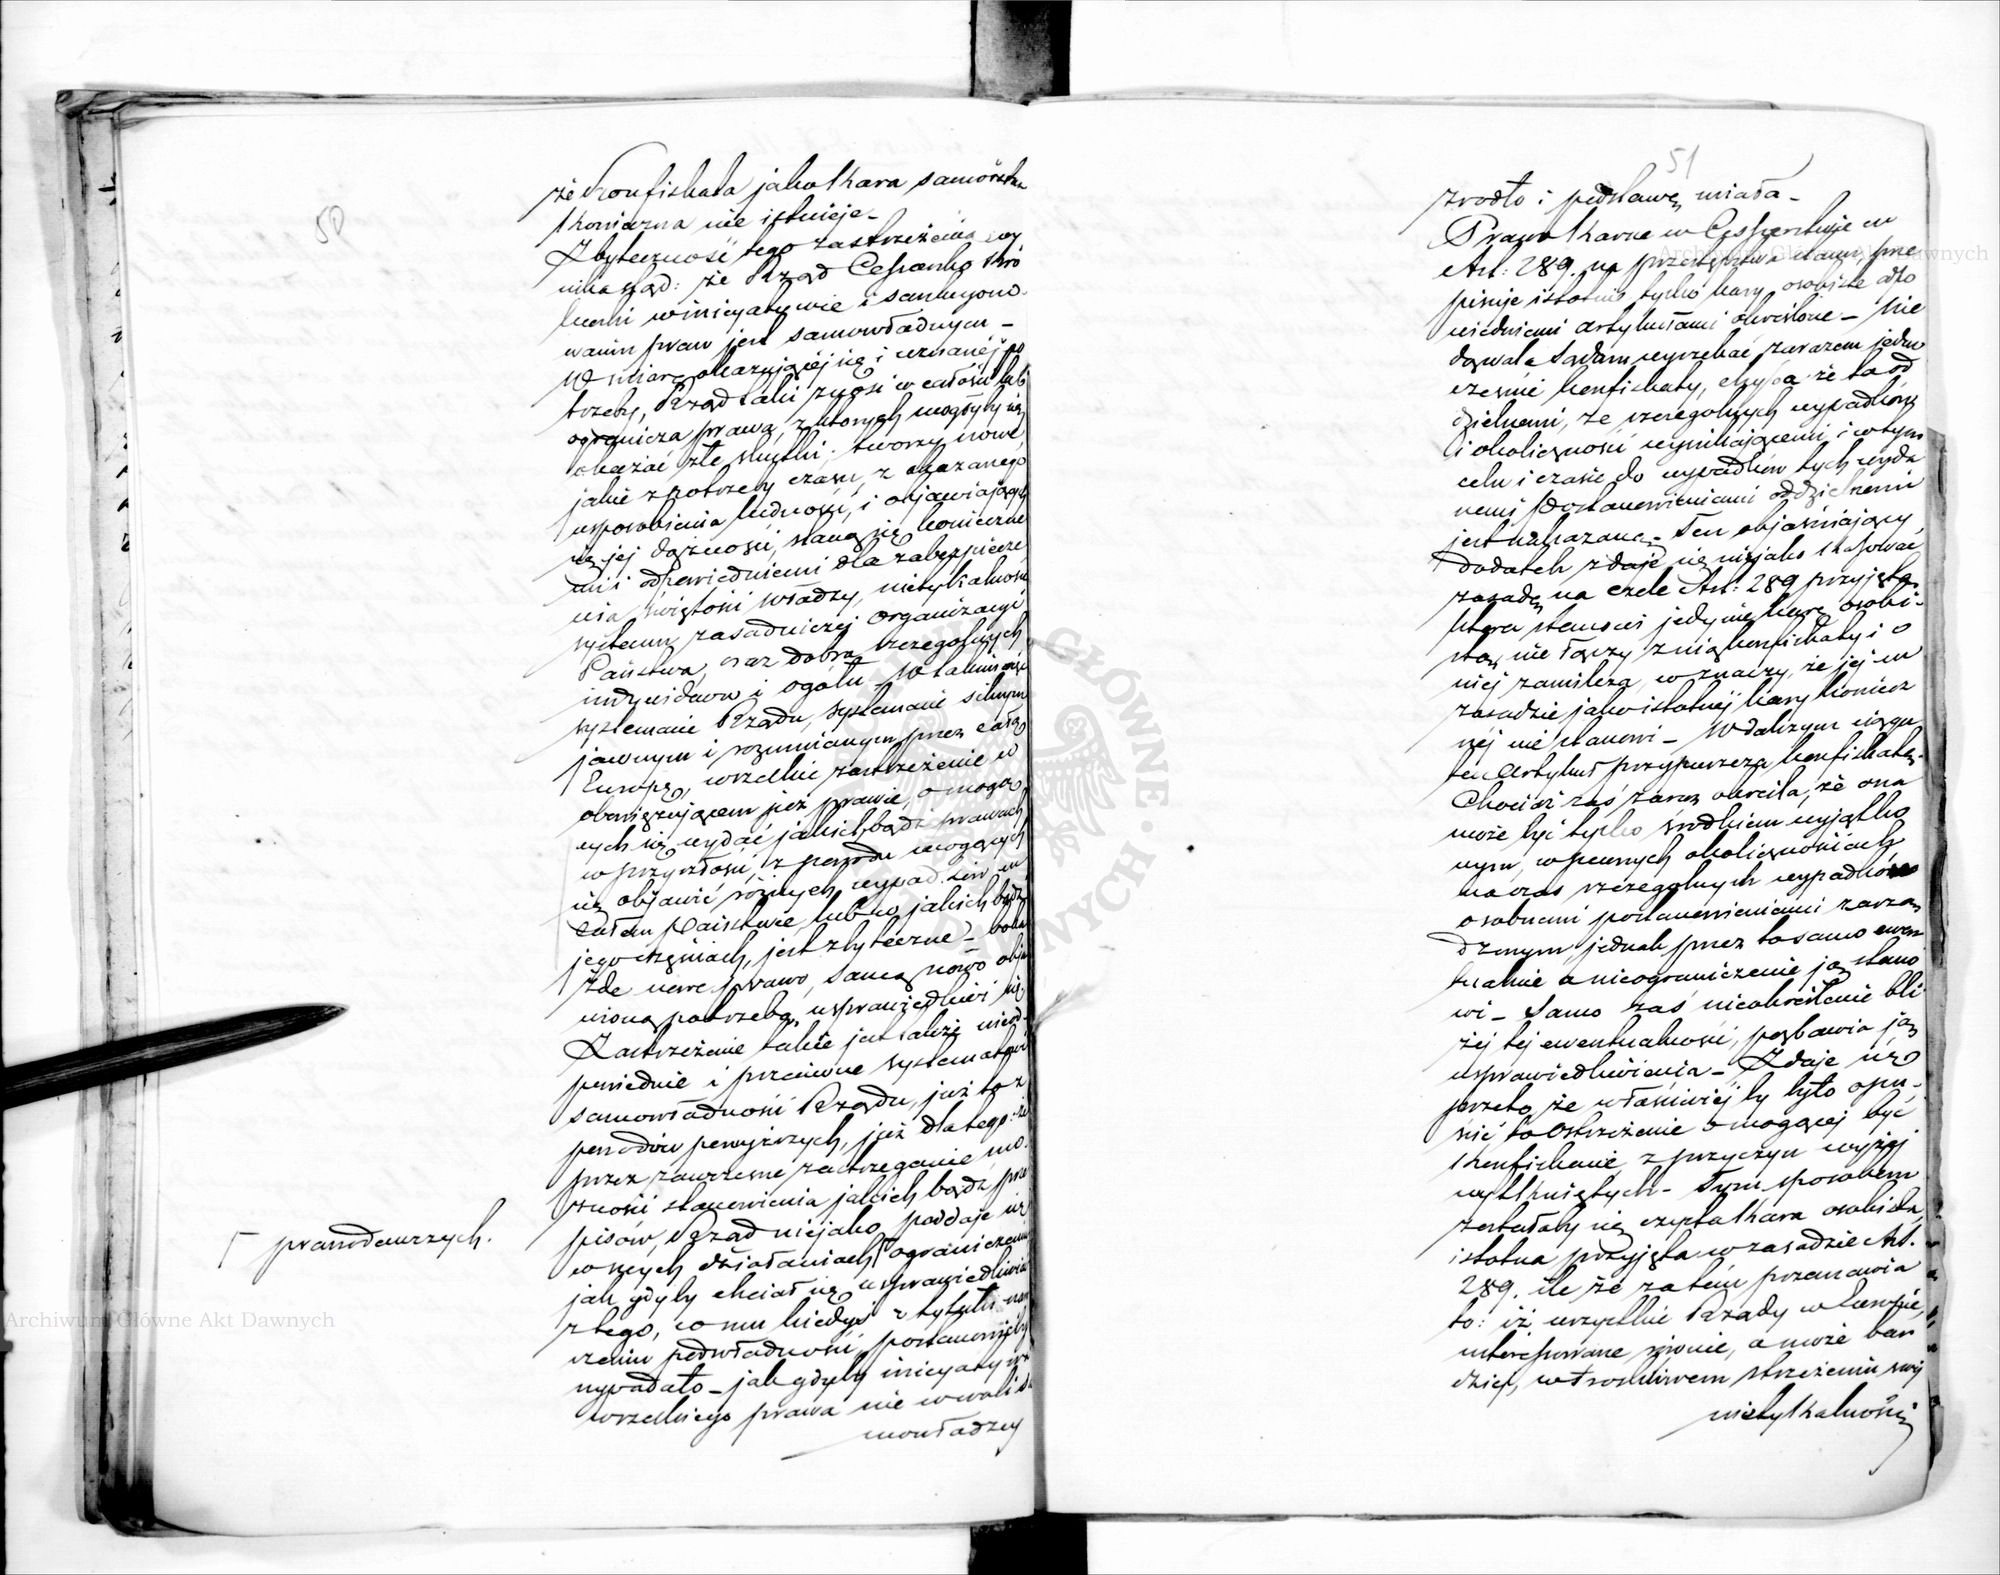 50
że Konfiskata jako kara samoistna
konieczna nie istnieje –
Zbyteczność tego zastrzeżenia wy
nika ztąd: że Rząd Cesarsko
w inicyatywie i sankcyono
waniu praw jest samowładnym –
W miarę okazującej się i uznanéj po
trzeby, Rząd taki znosi w całości lub
ogranicza prawa, z których mogłyby się
okazać złe skutki; tworzy nowe,
jakie z potrzeby czasu, z okazanego
usposobienia ludności, i objawiających
się jej dążności, staną się konieczne
mi i odpowiedniemi dla zabezpiecze
nia świętości władzy, nietykalności
systemu zasadniczej organizacyi
Państwa, oraz dobra szczególnych
indywiduów i ogółu – W takim więc
systemacie Rządu, systemacie silnym
jawnym i rozumianym przez całą
Europę, wszelkie zastrzeżenie w
obowiązującem już prawie, o mogą
cych się wydać jakichbądź prawach
w przyszłości, z powodu mogących
się objawić różnych wypadków w
całem Państwie, lub w jakich bądź
jego częściach, jest zbyteczne – bo ka
żde nowe prawo, samą nowo obja
wioną potrzebą, usprawiedliwi się.
Zastrzeżenie takie jest także nieod
powiednie i przeciwne systematowi
samowładności Rządu, już to z
powodów powyższych, już dla tego: że
przez zawczesne zastrzeganie mo
żności stanowienia jakich bądź prze
pisów, Rząd niejako poddaje się
w swych działaniach ⌈ ograniczeniu
jak gdyby chciał się usprawiedliwiać
z tego, co mu kiedyś z tytułu
podwładności, postanowićby
wypadało – jak gdyby inicyatywa
wszelkiego prawa nie w woli sa
mowładzcy
⌈ prawodawczych.
51
zrodło i podstawę miała –
Prawo karne w Cesarstwie w
Art: 289. na przestępstwa stanu, prze
pisuje istotnie tylko kary osobiste odpo
wiedniemi artykułami określone – Nie
dozwala Sądom wyrzekać zarazem jedno
cześnie konfiskaty, chyba że ta od
dzielnemi, ze szczególnych wypadków
i okoliczności wynikającemi, i w tym
celu i czasie do wypadków tych wyda
nemi postanowieniami oddzielnemi
jest nakazana – Ten objaśniający
dodatek zdaje się niejako skasować
zasadę na czele Art: 289 przyjętą,
która stanowi jedynie karę osobi-
stą, nie łączy z nią konfiskaty i o
niej zamilcza, w znaczy, że jej w
zasadzie jako istotnéj kary koniecz
nej nie stanowi – W dalszym ciągu
ten Artykuł przypuszcza konfiskatę.
Chociaż zaś zaraz określa, że ona
może być tylko środkiem wyjątko
wym, w pewnych okolicznościach
na czas szczególnych wypadków
osobnemi postanowieniami zarzą
dzonym, jednak przez to samo ewen
tualnie a nieograniczenie ją stano
wi – Samo zaś nieokreślenie bli
żéj tej ewentualności, pozbawia ją
usprawiedliwienia – Zdaje się
przeto, że właściwiéj by było opu-
ścić to Ostrzeżenie o mogącej być
konfiskacie, z przyczyn wyżéj
wytkniętych – Tym sposobem
zostałaby się czysta kara osobista,
istotna przyjęta w zasadzie Art.
289. ile że zatem przemawia
to: iż wszystkie Rządy w Europie,
interesowane równie, a może bar
dziej, w troskliwem strzeżeniu swej
nietykalności